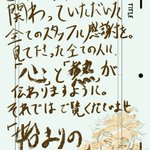 TITLE
関わっていただいた
全てのスタッフに感謝を。
見て下さった全ての人に
"心"と"熱"が
伝わりますように。
それではご覧くださいませ
始まりの